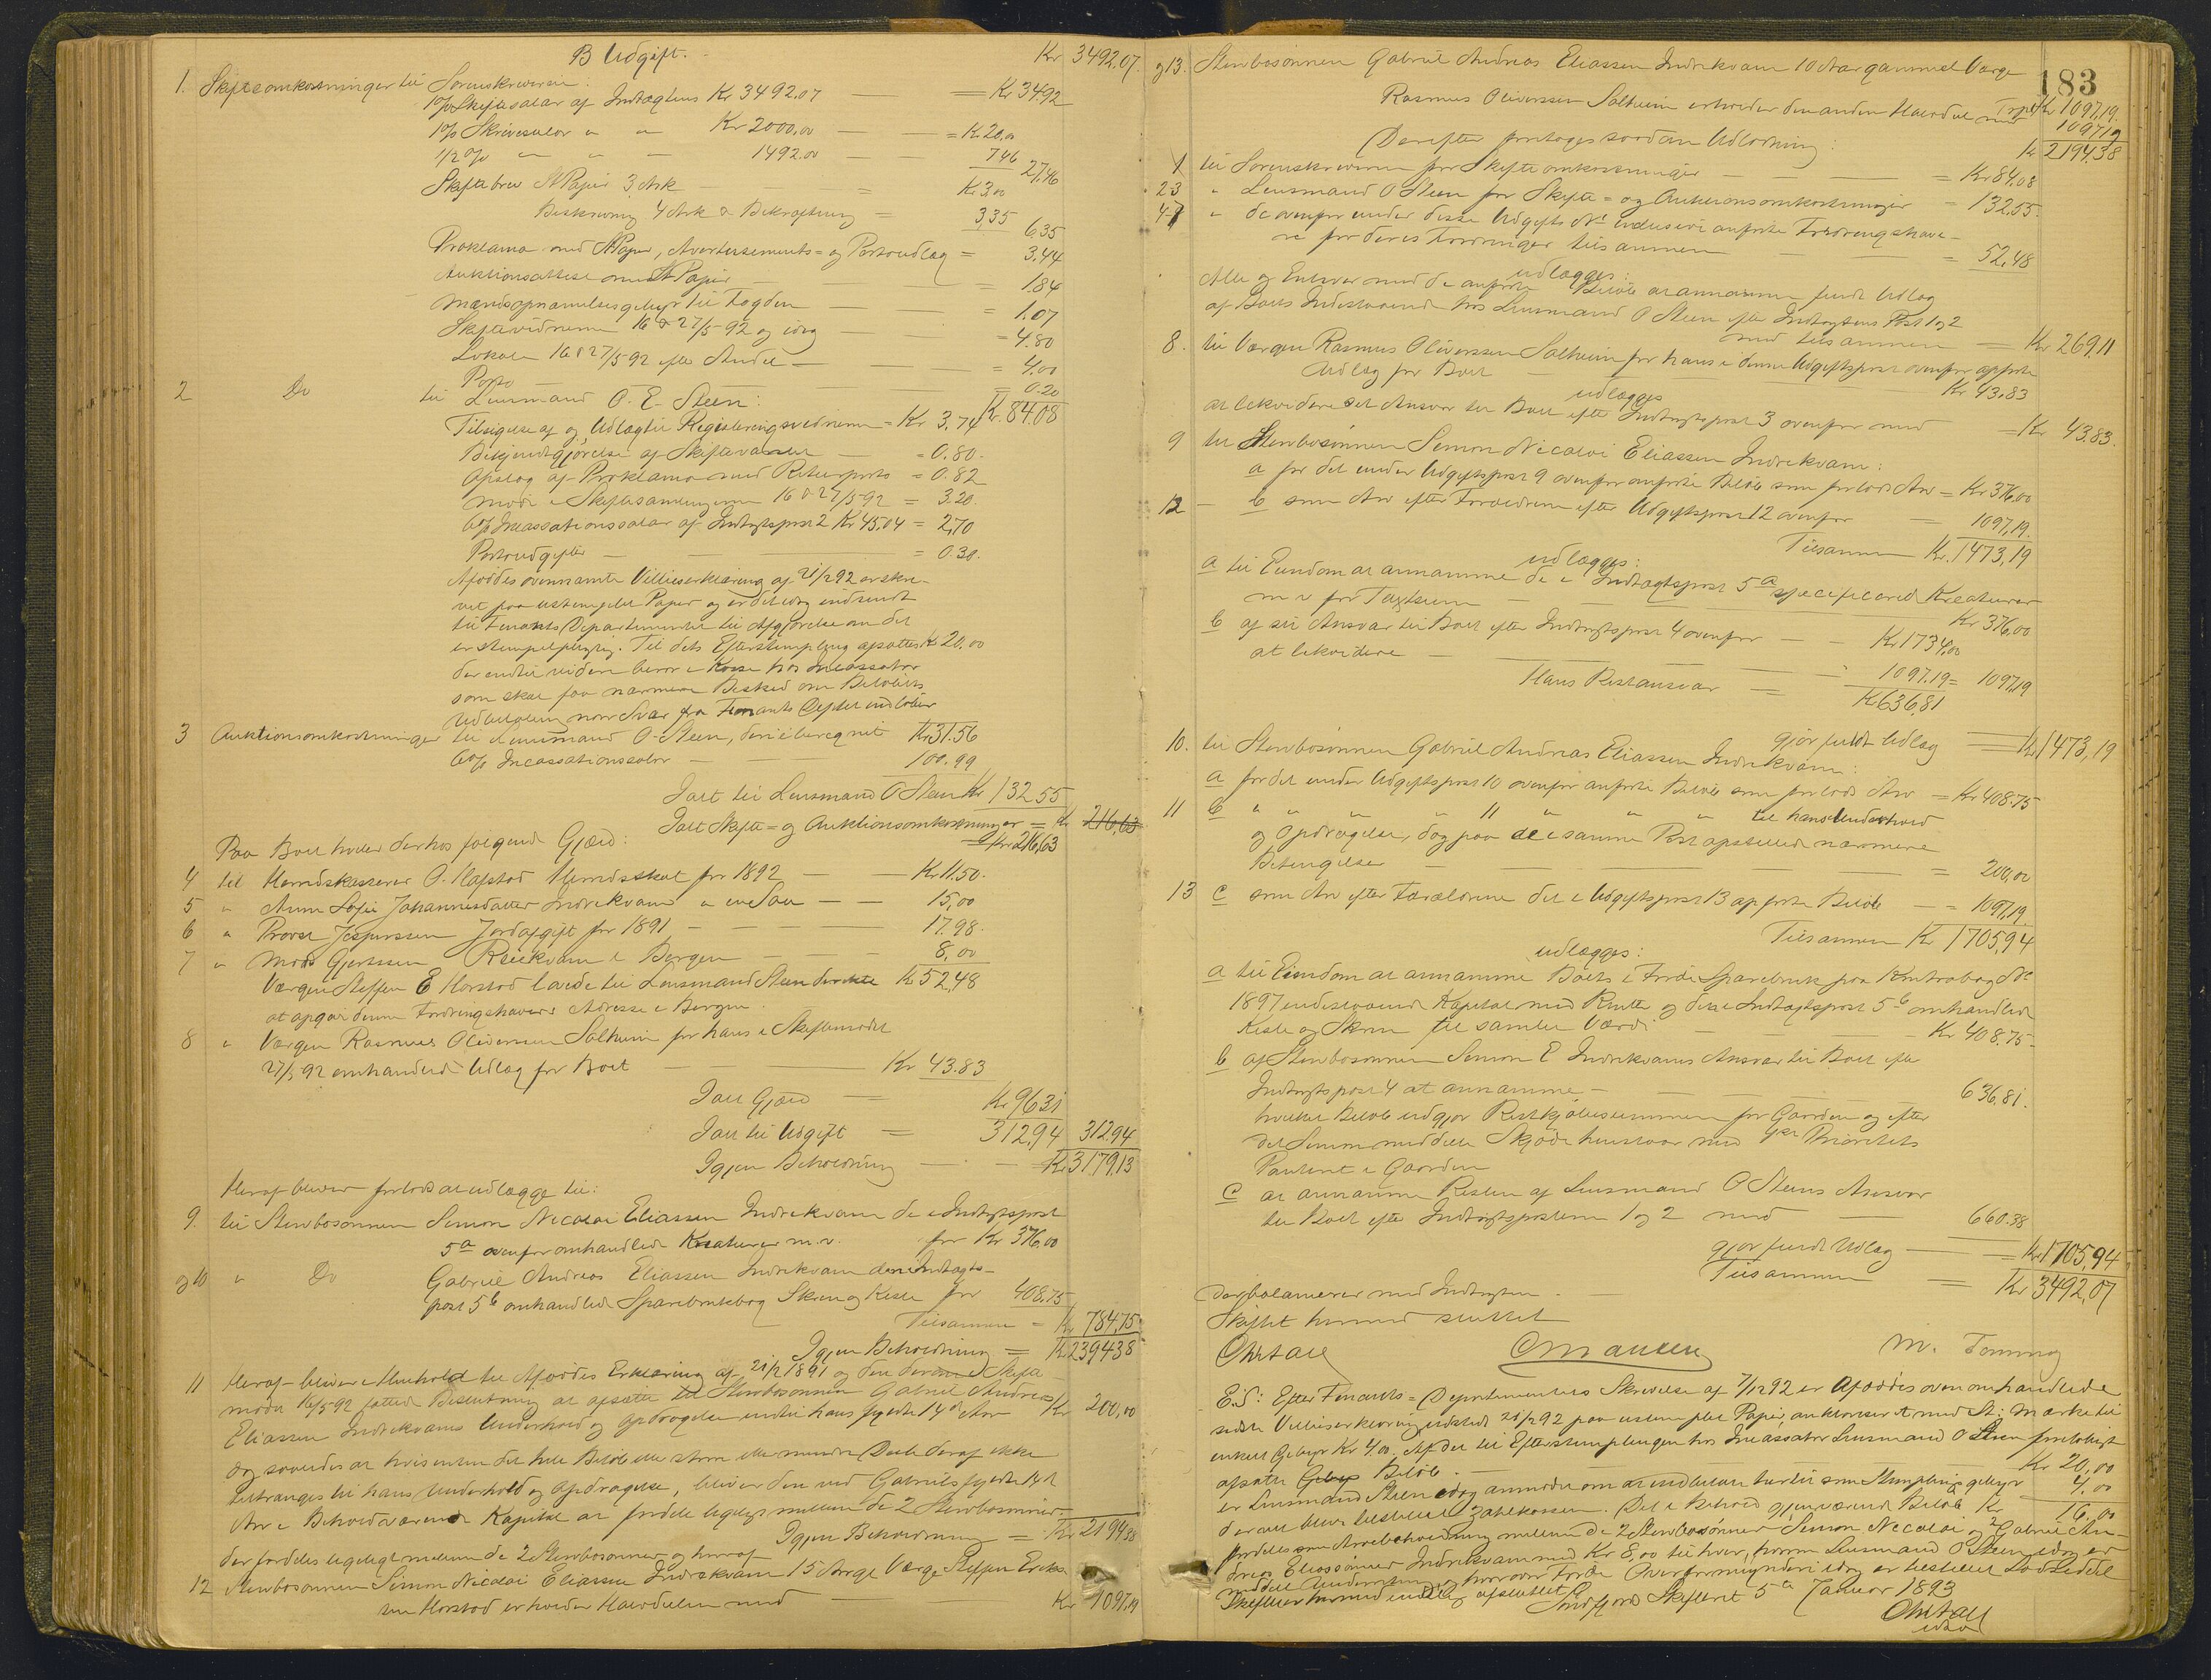 B Udgift.
Kr 3492.07.
1. Skifteomkostninger til Sorenskriveren:
1% Skiftesalar af Indtægtens Kr 3492.07 — = Kr 34.92
1% Skrivesalar " " Kr 2000,00 — = Kr 20,00
1/2 % " " — 1492.00 — 7.46 27,46
Skiftebrev St Papir 3 Ark — = Kr 3,00
Beskrivning 4 Ark & Bekræftning = 3,35 6.35
Proklama med St Papir, Avertissements= og Portoudlæg = 3.44
Auktionsattest med St Papir — = 1.84
Mandsopnævnelsesgebyr til Fogden — = 1.07
Skiftevidnerne 16 & 27/5-92 og idag — = 4.80
Lokale 16 & 27/5 92 efter Andel — = 4.00
Porto — = 0.20
Kr. 84.08
2 Do til Lensmand O. E. Steen:
Tilsigelse af og Udlæg til Registreringsvidnerne = Kr 3,74
Bekjendtgjørelse af Skiftevarsel — = 0.80.
Opslag af Proklama med Returporto = 0.82
Møde i Skiftesamlingerne 16 & 27/5-92 = 3.20.
6% Incassationssalar af Indtægtspost 2 Kr 45.04 = 2,70
Portoudgifter — = 0.30.
Afdødes ovennævnte Villieserklæring af 21/12 92 er skre-
vet paa ustemplet Papir og er det idag indsendt
til Finants Departementet til Afgjørelse om det
er stempelpligtig. Til dets Efterstempling afsættes Kr 20,00
der indtil videre beror i Kasse hos Incassator
som skal faa nærmere Besked om Beløbets
Udbetaling naar Svar fra Finants Deptet indløber
3 Auktionsomkostninger til Lensmand O. Steen, deri iberegnet Kr 31.56
6% Incassationssalar — 100.99
Ialt til Lensmand O Steen Kr 132.55
Ialt Skifte= og Auktionsomkostninger = Kr 216,63
Kr 216,63
Paa Boet hviler derhos følgende Gjæld:
4 til Herredskasserer O. Hafstad Herredsskat for 1892 — Kr 11.50.
5 " Anne Sofie Johannesdatter Indrekvam " en Sau — 15,00
6 " Provst Jespersen Jordafgift for 1891 — 17.98.
7 " Mads Gjertssen i Bergen — 8,00
Kr 52,48
Værgen Steffen E Horstad lovede til Lensmand Steen direkte
at opgive denne Fordringshavers Adresse i Bergen
8 " Værgen Rasmus Oliverssen Solheim for hans i Skiftemødet
27/5 92 omhandlede Udlæg for Boet — Kr 43.83
Ialt Gjæld — Kr 96.31
Ialt til Udgift = 312.94 312.94
Igjen Beholdning — Kr 3179,13
Heraf bliver forlods at udlægge til:
9. til Stervbosønnen Simon Nicolai Eliassen Indrekvam de i Indtægtspost
5 a ovenfor omhandlede Kreaturer m.v. for Kr 376,00
og 10 " Do Gabriel Andreas Eliassen Indrekvam den i Indtægts-
post 5 b omhandlede Sparebankebog Skrin og Kiste for 408.75
Tilsammen = Kr 784,75
Igjen Beholdning = Kr 2394.38
11 Heraf bliver i Henhold til Afdødes Erklæring af 21/12 1891 og den derom i Skifte-
mødet 16/5 92 fattede Beslutning at afsætte til Stervbosønnen Gabriel Andreas
Eliassen Indrekvams Underhold og Opdragelse indtil hans fyldte 14de Aar Kr 200,00
dog saaledes at hvis enten det hele Beløb eller større eller mindre Deel deraf ikke
tiltrænges til hans Underhold og Opdragelse, bliver den ved Gabriels fyldte 14de
Aar i Behold værende Kapital at fordele ligeligt mellem de 2 Stervbosønner.
Igjen Beholdning = Kr 2194.38
der fordeles ligeligt mellem de 2 Stervbosønner og heraf
12 Stervbosønnen Simon Nicolai Eliassen Indrekvam 15 Aar gl Værge Steffen Erik-
sen Horstad erholder Halvdelen med — Kr 1097,19
183
og 13. Stervbosønnen Gabriel Andreas Eliassen Indrekvam 10 Aar gammel Værge
Rasmus Oliverssen Solheim erholder den anden Halvdel med
Trpt Kr 1097,19.
1097,19
Kr 2194,38
Derefter foretoges saadan Udlodning:
1 til Sorenskriveren for Skifteomkostninger — = Kr 84,08
2-3 " Lensmand O Steen for Skifte= og Auktionsomkostninger = 132,55.
4-7 " de ovenfor under disse Udgifts No inclusive anførte Fordringshave-
re for deres Fordringer tilsammen — = 52,48
udlægges:
Alle og Enhver med de anførte Beløb at annamme fuldt Udlæg
af Boets Indestaaende hos Lensmand O Steen efter Indtægtens Post 1 og 2
med tilsammen — Kr 269,11
8. til Værgen Rasmus Oliverssen Solheim for hans i denne Udgiftspost ovenfor opførte
Udlæg for Boet — Kr 43.83
udlægges
at likvidere det Ansvar til Boet efter Indtægtspost 3 ovenfor med = Kr 43,83.
9 til Stervbosønnen Simon Nicolai Eliassen Indrekvam:
a for det under Udgiftspost 9 ovenfor anførte Beløb som forlods Arv = Kr 376,00
12 — b som Arv efter Forældrene efter Udgiftspost 12 ovenfor — 1097,19.
Tilsammen Kr. 1473,19
udlægges:
a til Eiendom at annamme de i Indtægtspost 5 a specificerede Kreaturer
m v for Taxtsum — Kr 376,00
b af sit Ansvar til Boet efter Indtægtspost 4 ovenfor — Kr 1734,00
at likvidere — 1097.19 = 1097,19
Hans Restansvar — Kr 636,81
gjør fuldt Udlæg — Kr 1473,19
10. til Stervbosønnen Gabriel Andreas Eliassen Indrekvam:
a for det under Udgiftspost 10 ovenfor anførte Beløb som forlods Arv = Kr 408.75
11 b " " " " 11 " " " " til hans Underhold
og Opdragelse, dog paa de i samme Post opstillede nærmere
Betingelser — = 200,00
13 c som Arv efter Forældrene det i Udgiftspost 13 opførte Beløb — = 1097,19.
Tilsammen Kr 1705,94
udlægges:
a til Eiendom at annamme Boets i Førde Sparebank paa Kontrabog No
1897 indestaaende Kapital med Renter og de i Indtægtspost 5 b omhandlede
Kiste og Skrin til samlet Værdi — Kr 408.75
b af Stervbosønnen Simon E Indrekvams Ansvar til Boet efter
Indtægtspost 4 at annamme — 636.81.
hvilket Beløb udgjør Restkjøbesummen for Gaarden og efter
det Simon meddelte Skjøde henstaar med 1ste Prioritets
Panteret i Gaarden
c at annamme Resten af Lensmand O Steens Ansvar
til Boet efter Indtægtsposterne 1 og 2 med — 660.38
gjør fuldt Udlæg — = Kr 1705,94
Tilsammen = Kr 3492,07
der balancerer med Indtægten.
Skiftet hermed sluttet
M. Tonning
E.S: Efter Finants=Departementets Skrivelse af 7/12 92 er Afdødes ovenomhandlede
sidste Villieserklæring udstedt 21/12 92 paa ustemplet Papir, anseet med St: Mærke til
enkelt Gebyr Kr 4,00. Af det til Efterstemplingen hos Incassator Lensmand O Steen foreløbigt
afsatte Gebyr Beløb — Kr 20,00
er Lensmand Steen idag anmodet om at indbetale hertil som Stemplingsgebyr 4,00
Det i Behold gjenværende Beløb Kr 16,00
fordeles som Arvebeholdning mellem de 2 Stervbosønner Simon Nicolai og Gabriel An-
dreas Eliassønner Indrekvam med Kr 8,00 til hver, hvorom Lensmand O Steen idag er
meddelt Underretning, og hvorover Førde Overformynderi idag er tilstillet Lodseddel
Skiftet er hermed endelig afsluttet. Søndfjords Skifteret 5te Januar 1893